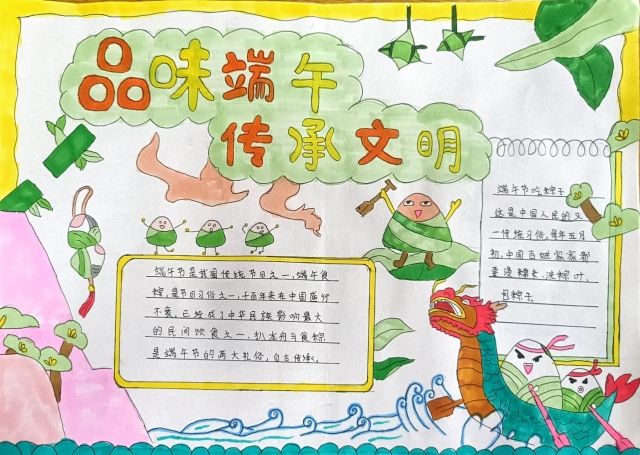 品味端午
传承文明
端午节是我国传统节日之一,端午食
粽,是节日习俗之一,千百年来在中国盛行
不衰,已经成了中华民族影响最大
的民间饮食之一,扒龙舟与食粽
是端午节的两大礼俗,自古传承
端午节吃粽子
这是中国人民的又
一传统习俗,每年五月
初,中国百姓家家都
要浸糯米、洗粽叶、
包粽子.